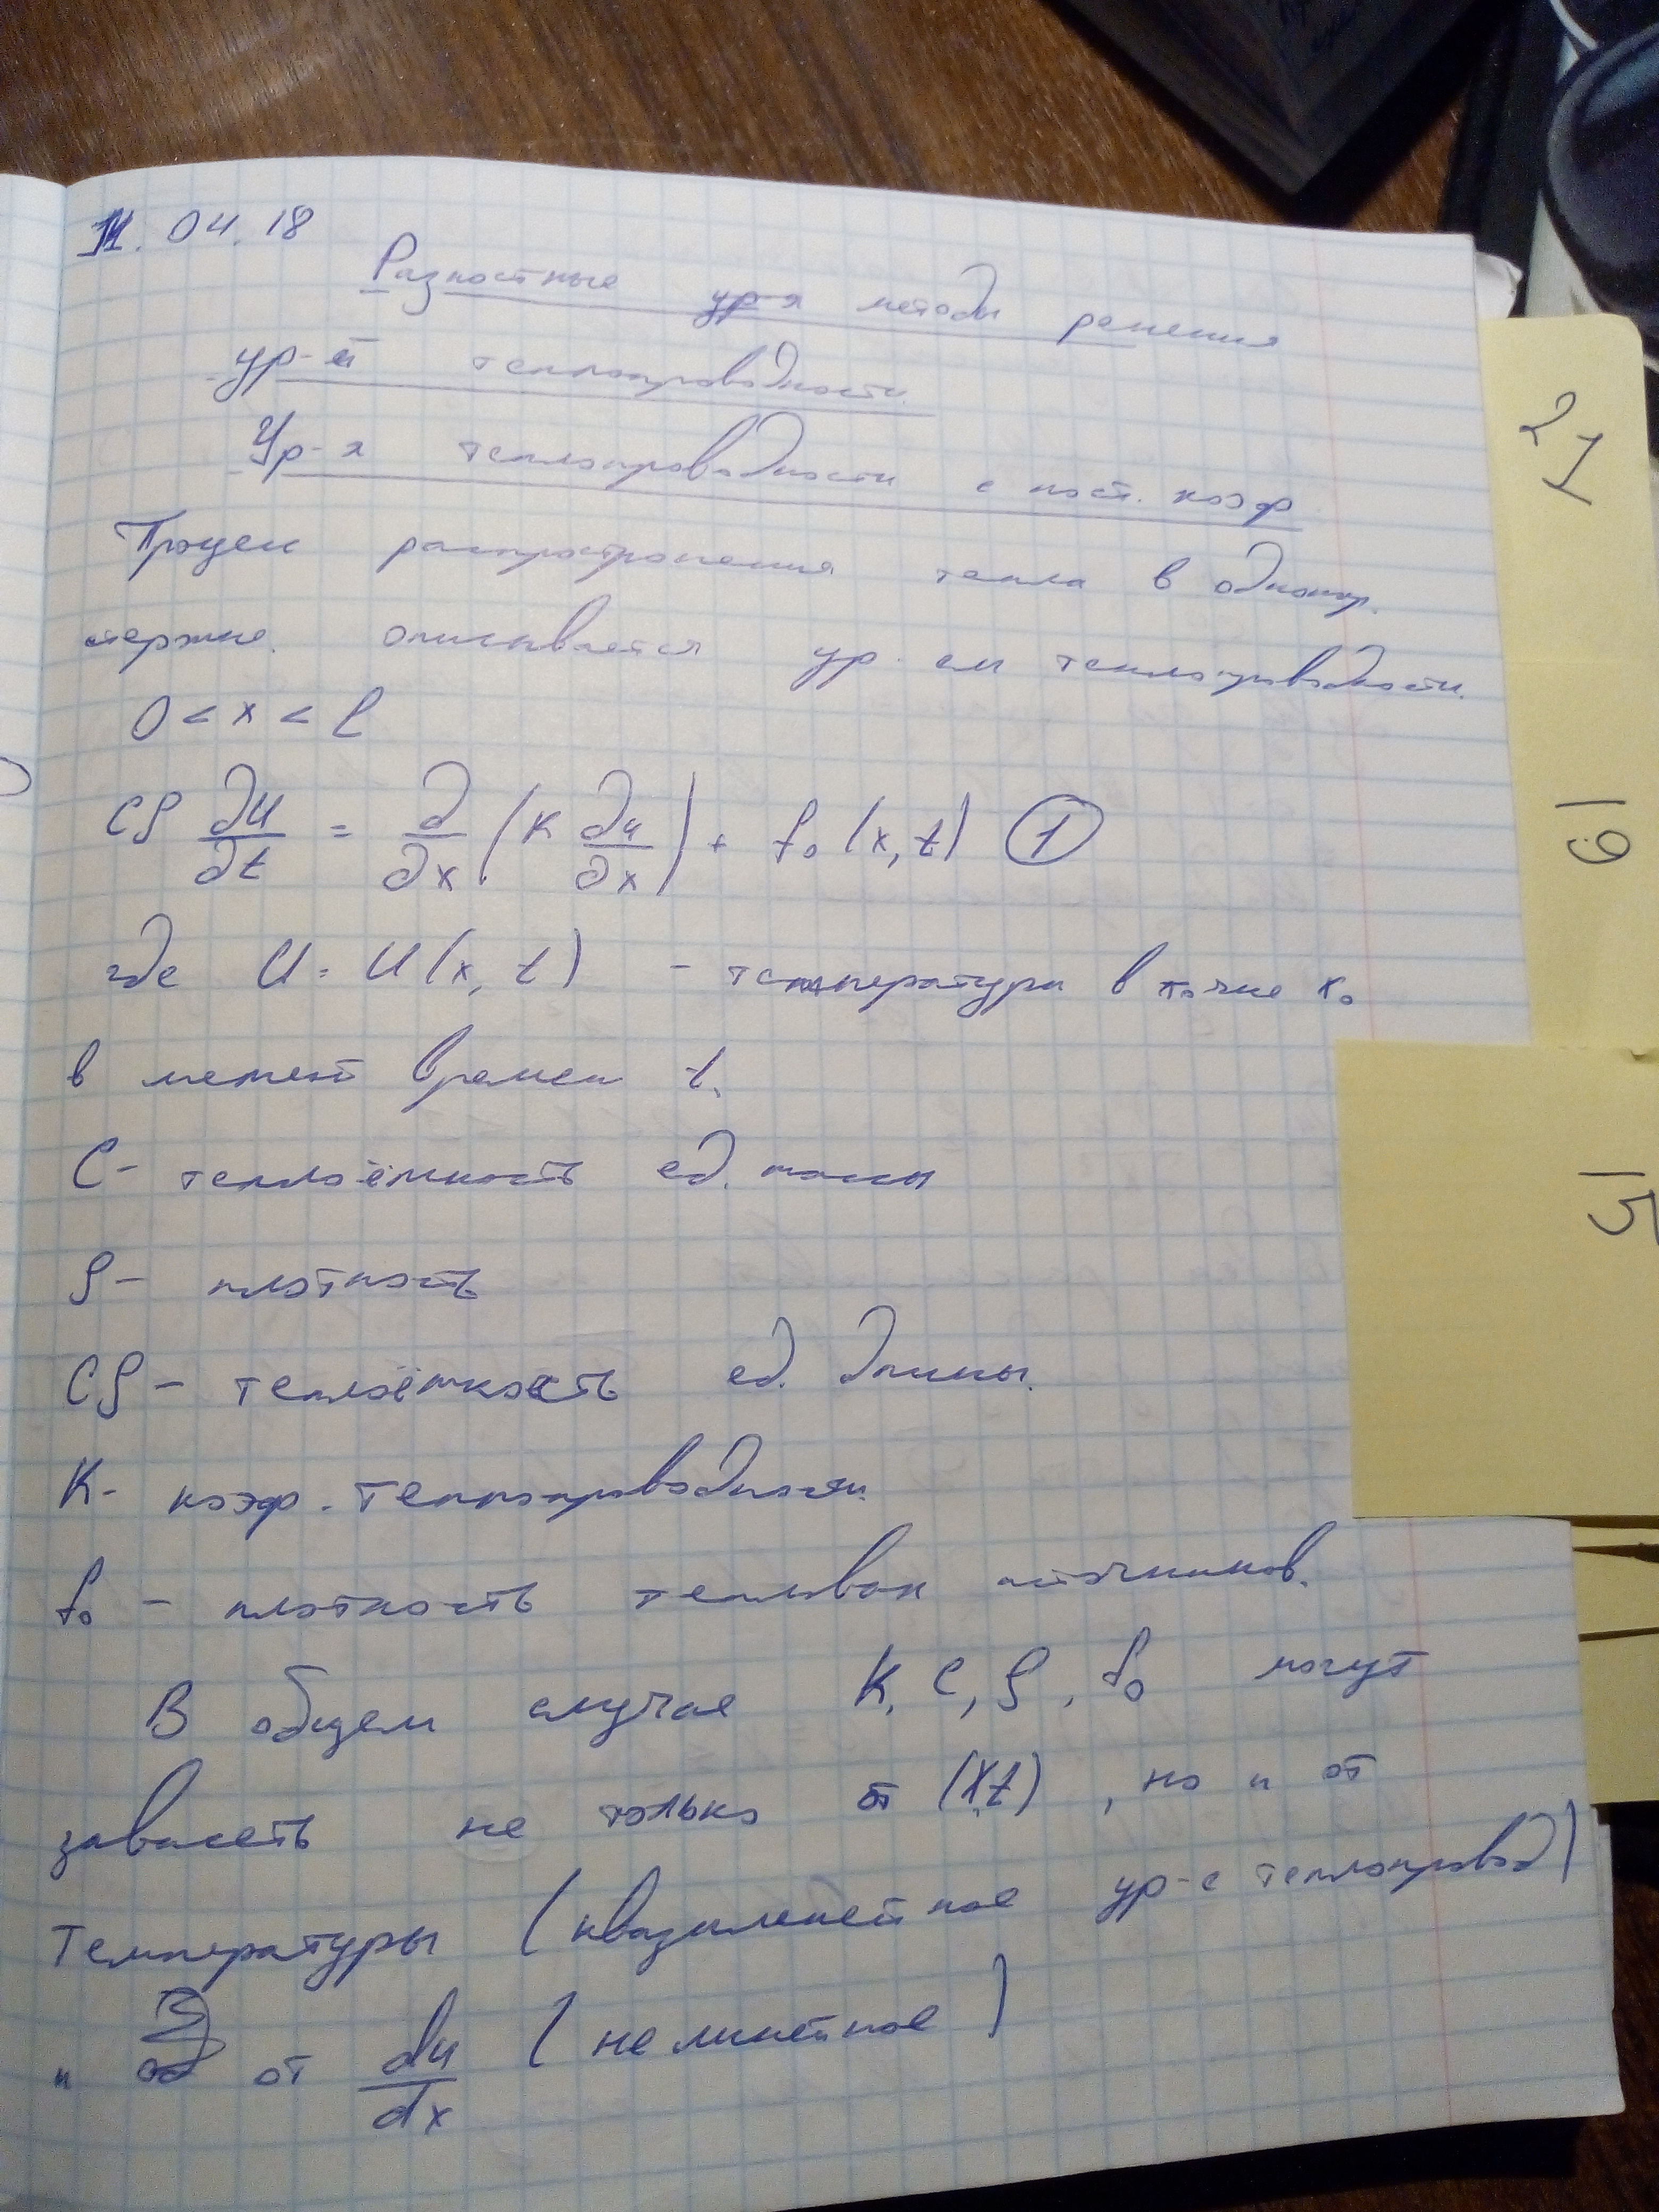 11.04.18
Разностные ур-я методы решения
ур-й теплопроводности.
Ур-я теплопроводности с пост. коэф
Процесс распространения тепла в одномер.
стержне. описывается ур-ем теплопроводности.
0 < x < l
Cρ ∂u/∂t = ∂/∂x (K ∂u/∂x) + f₀(x,t) ①
где U = U(x, t) - температуры в точке x₀
в момент времен t.
C - теплоёмкость ед. массы
ρ - плотность
Cρ - теплоёмкость ед. длины.
K - коэф. теплопроводности.
f₀ - плотность тепловых источников.
В общем случае K, C, ρ, f₀ могут
зависеть не только от (x,t), но и от
температуры (квазилинейное ур-е теплопровод)
и от du/dx (нелинейное)
21
19
15